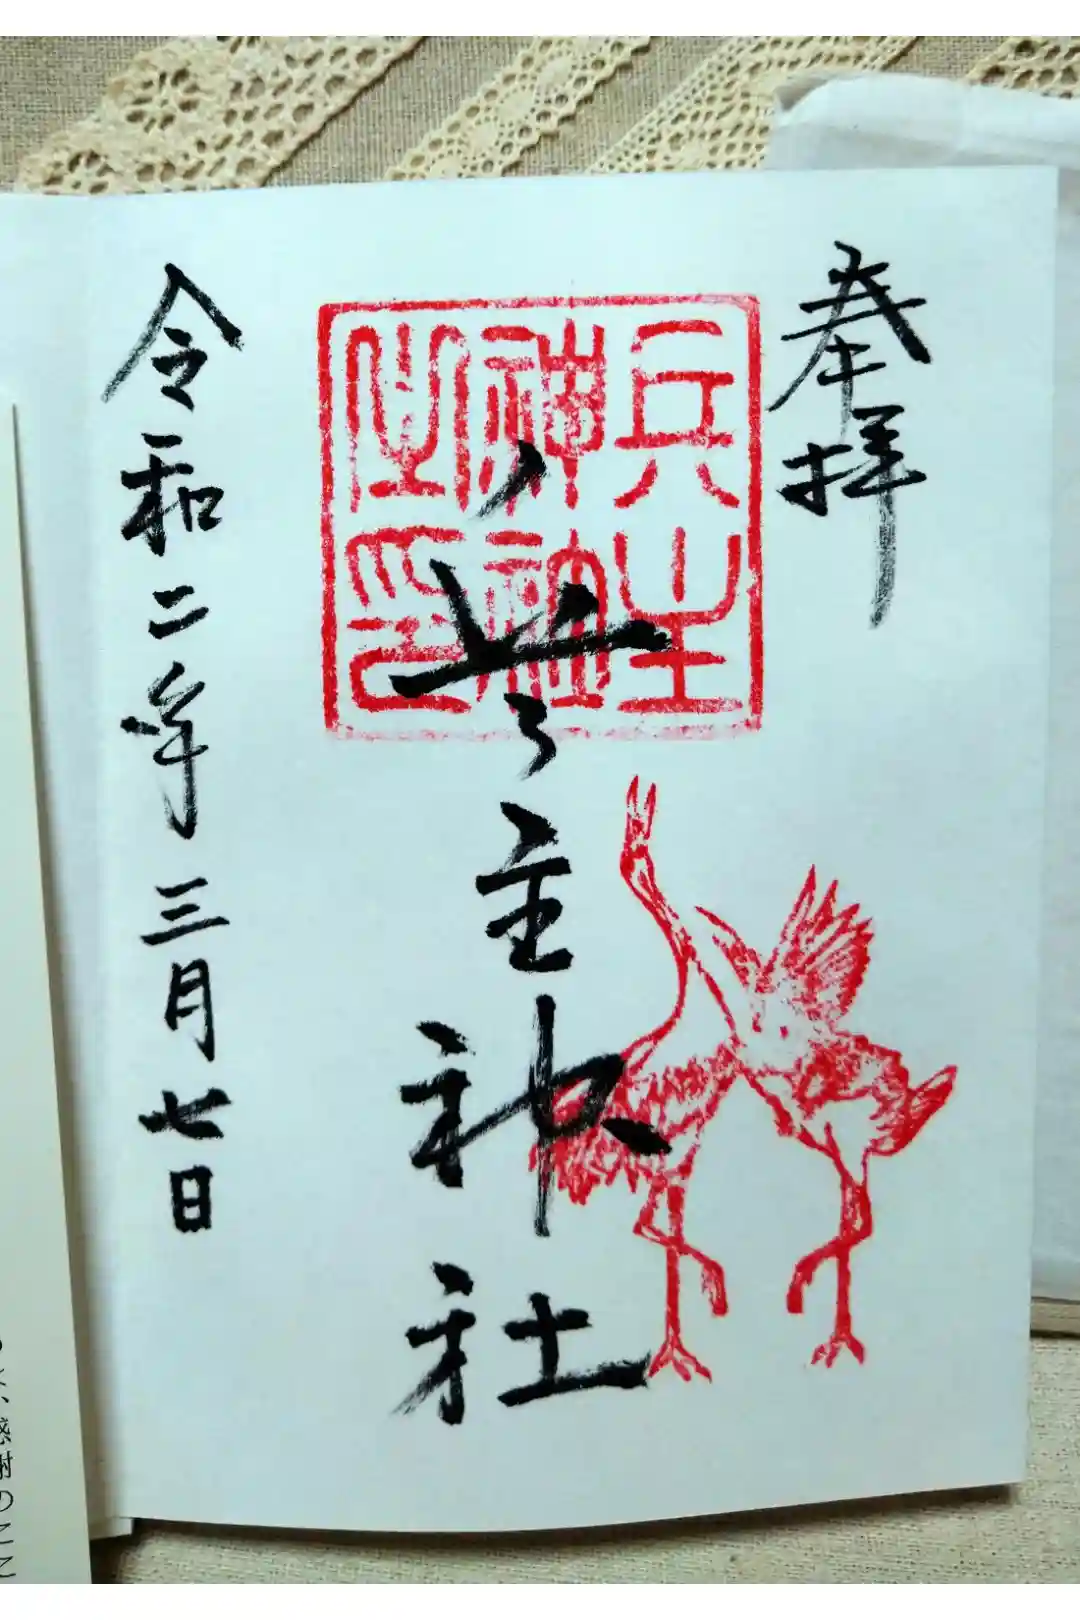 奉拝
兵主
神社
之印
兵主神社
令和二年三月七日
感謝のここ